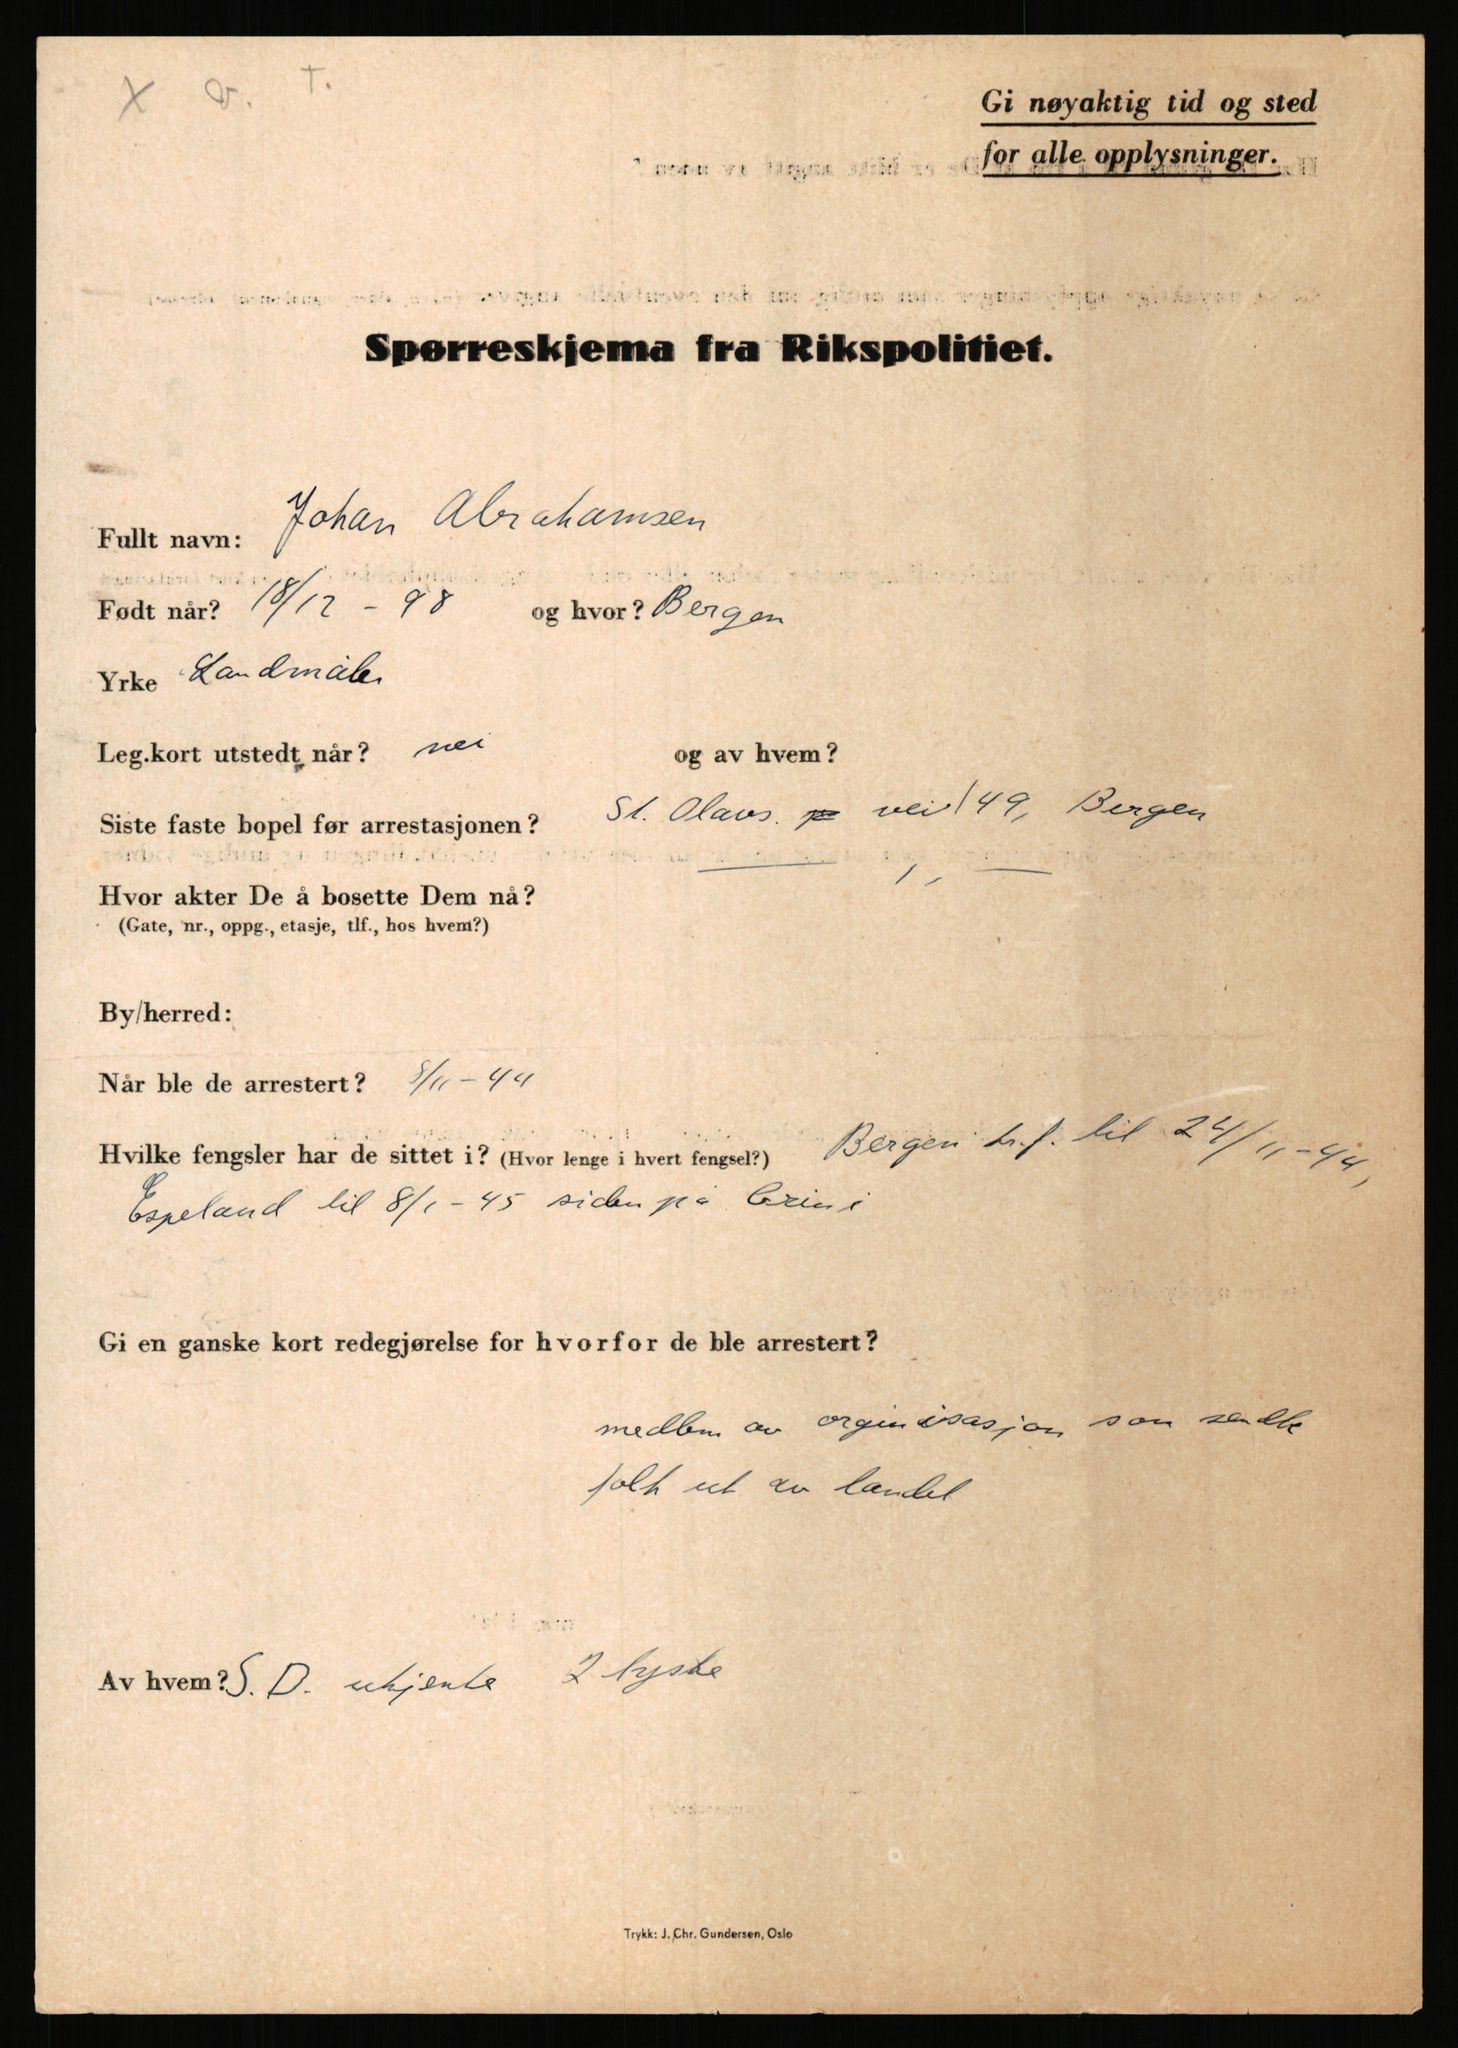 X v. T.
Gi nøyaktig tid og sted
for alle opplysninger.
Spørreskjema fra Rikspolitiet.
Fullt navn: Johan Abrahamsen
Født når? 18/12 - 98 og hvor? Bergen
Yrke Landmåler
Leg.kort utstedt når? nei og av hvem?
Siste faste bopel før arrestasjonen? St. Olavs. vei 49, Bergen
Hvor akter De å bosette Dem nå? — " —
(Gate, nr., oppg., etasje, tlf., hos hvem?)
By/herred:
Når ble de arrestert? 8/11 - 44
Hvilke fengsler har de sittet i? (Hvor lenge i hvert fengsel?) Bergen kr.f. til 24/11-44,
Espeland til 8/1-45 siden på Grini
Gi en ganske kort redegjørelse for hvorfor de ble arrestert?
medlem av orginisasjon som sendte
folk ut av landet
Av hvem? S. D. ukjente 2 tyske
Trykk: J. Chr. Gundersen, Oslo